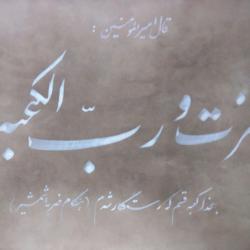 قال امیرالمومنین :
زت و ربّ الکعبه
بخدای کعبه قسم که رستگار شدم (هنگام ضربه شمشیر)